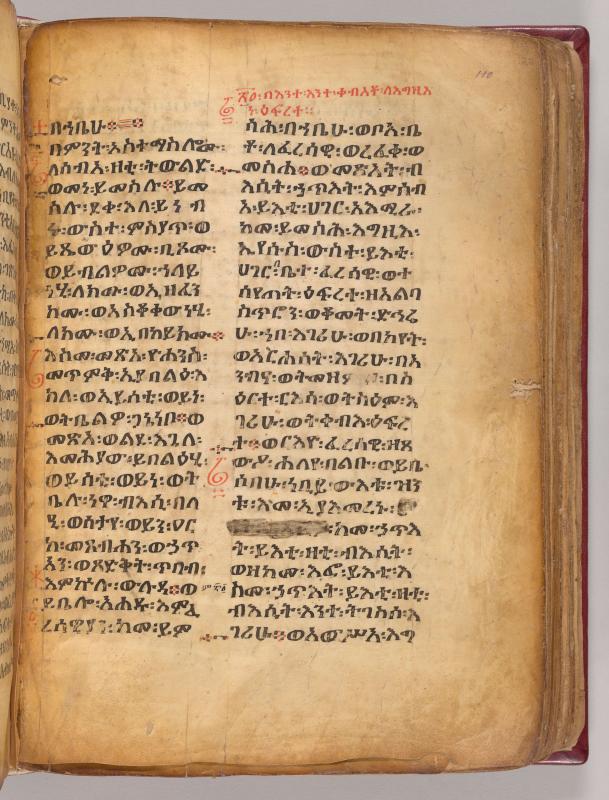 110
፳፬፡በእንተ፡እንተ፡ቀብአቶ፡ለእግዚእ
ነ፡ዕፍረተ።
በኀቤሁ።
በምንት፡አስተማስለሙ፡
ለሰብአ፡ዛቲ፡ትውልድ፡
ወመነ፡ይመስሉ፡ይመ
ስሉ፡ደቀ፡እለ፡ይነብ
ሩ፡ውስተ፡ምስያጥ፡ወ
ይጼውዕዎሙ፡ቢጾሙ፡
ወይብልዎሙ፡ኀላይ
ነሂ፡ለክሙ፡ወኢዘፈን
ክሙ፡ወአስቆቀውነሂ፡
ለክሙ፡ወኢበከይክሙ።
እስመ፡መጽአ፡ዮሐንስ፡
መጥምቅ፡ኢያበልዕ፡እ
ክለ፡ወኢይሰቲ፡ወይነ፡
ወትቤልዎ፡ጋኔነቦ።ወ
መጽአ፡ወልደ፡እጓለ፡
እመሕያው፡ይበልዕሂ፡
ወይሰቲ፡ወይነ፡ወት
ቤሉ፡ነዋ፡ብእሲ፡በላ
ዒ፡ወስታዪ፡ወይን፡ዓር
ከ፡መጸብሐን፡ወኃጥ
አን፡ወጸድቅት፡ጥበብ፡
እምኵሉ፡ውሉዳ።ወ
ይቤሎ፡አሐዱ፡እምፈ
ሪሳዊያን፡ከመ፡ይም
ሳሕ፡በኀቤሁ፡ወቦአ፡ቤ
ቶ፡ለፈሪሳዊ፡ወረፈቀ፡ወ
መስሐ።ወመጽአት፡ብ
እሲት፡ኃጥእት፡እምሰብ
አ፡ይእቲ፡ሀገር፡አእሚራ፡
ከመ፡ይመስሕ፡እግዚእ፡
ኢየሱስ፡ውስተ፡ይእቲ፡
ሀገር፡በቤተ፡ፈሪሳዊ፡ወተ
ሳየጠት፡ዕፍረተ፡ዘአልባ
ስጥሮን፡ወቆመት፡ድኅሬ
ሁ፡ኀበ፡እገሪሁ፡ወበከየት፡
ወአርሐሰት፡እገሪሁ፡በአ
ንብዓ፡ወትመዝም፡በስ
ዕርተ፡ርእሳ፡ወትስዕም፡እ
ገሪሁ፡ወትቀብእ፡ዕፍረ
ተ።ወርእየ፡ፈሪሳዊ፡ዘጸ
ውዖ፡ሐለየ፡በልቡ፡ወይቤ፡
ሶበሁ፡ነቢይ፡ውእቱ፡ዝን
ቱ፡እመ፡ኢያእመረኑ፡
ከመ፡ኃጥእ
ት፡ይእቲ፡ዛቲ፡ብእሲት፡
ወዘከመ፡እፎ፡ይእቲ፡እ
ከመ፡ኃጥእት፡ይእቲ፡ዛቲ፡
ብእሲት፡እንተ፡ትገስስ፡እ
ገሪሁ።ወአውሥአ፡እግ